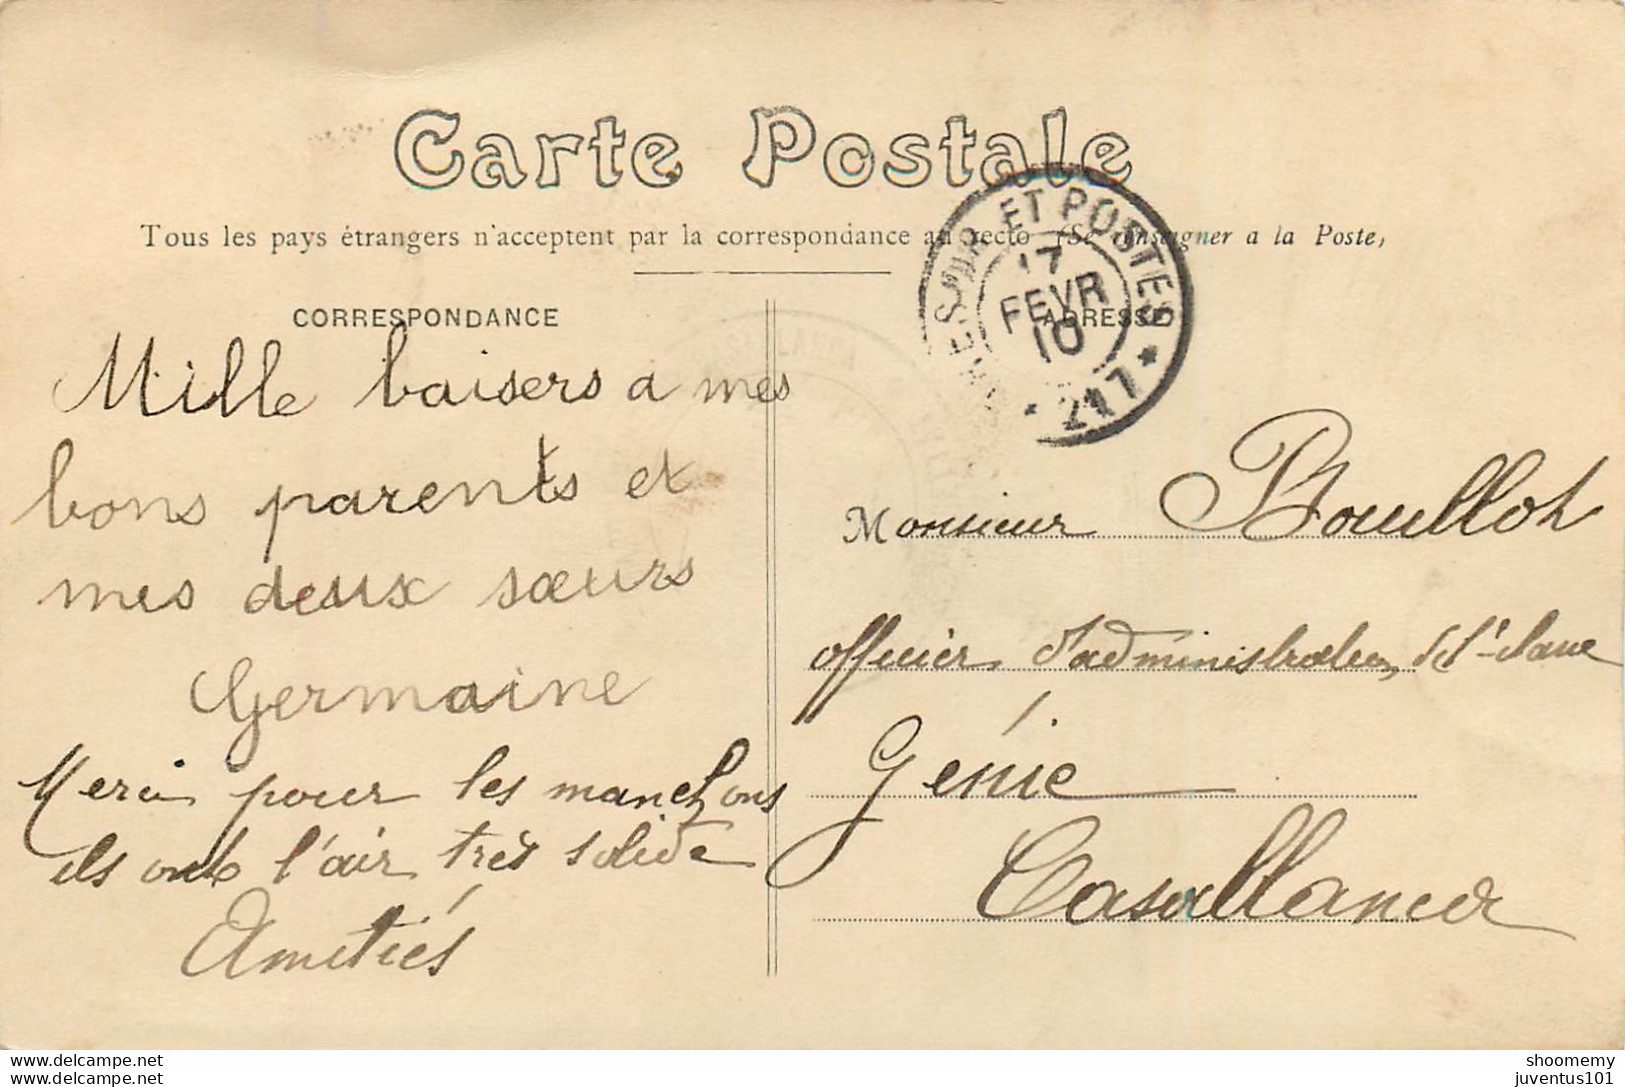 Carte Postale
Tous les pays étrangers n'acceptent par la correspondance au recto (Se renseigner a la Poste)
ET POSTES
17
FEVR
10
* 217 *
CORRESPONDANCE
ADRESSE
Mille baisers a mes
bons parents et
mes deux sœurs
Germaine
Merci pour les manchons
ils ont l'air très solide
Amitiés
Monsieur Bouillot
officier d'administration de 1e classe
Génie
Casablanca
www.delcampe.net
www.delcampe.net
shoomemy
juventus101